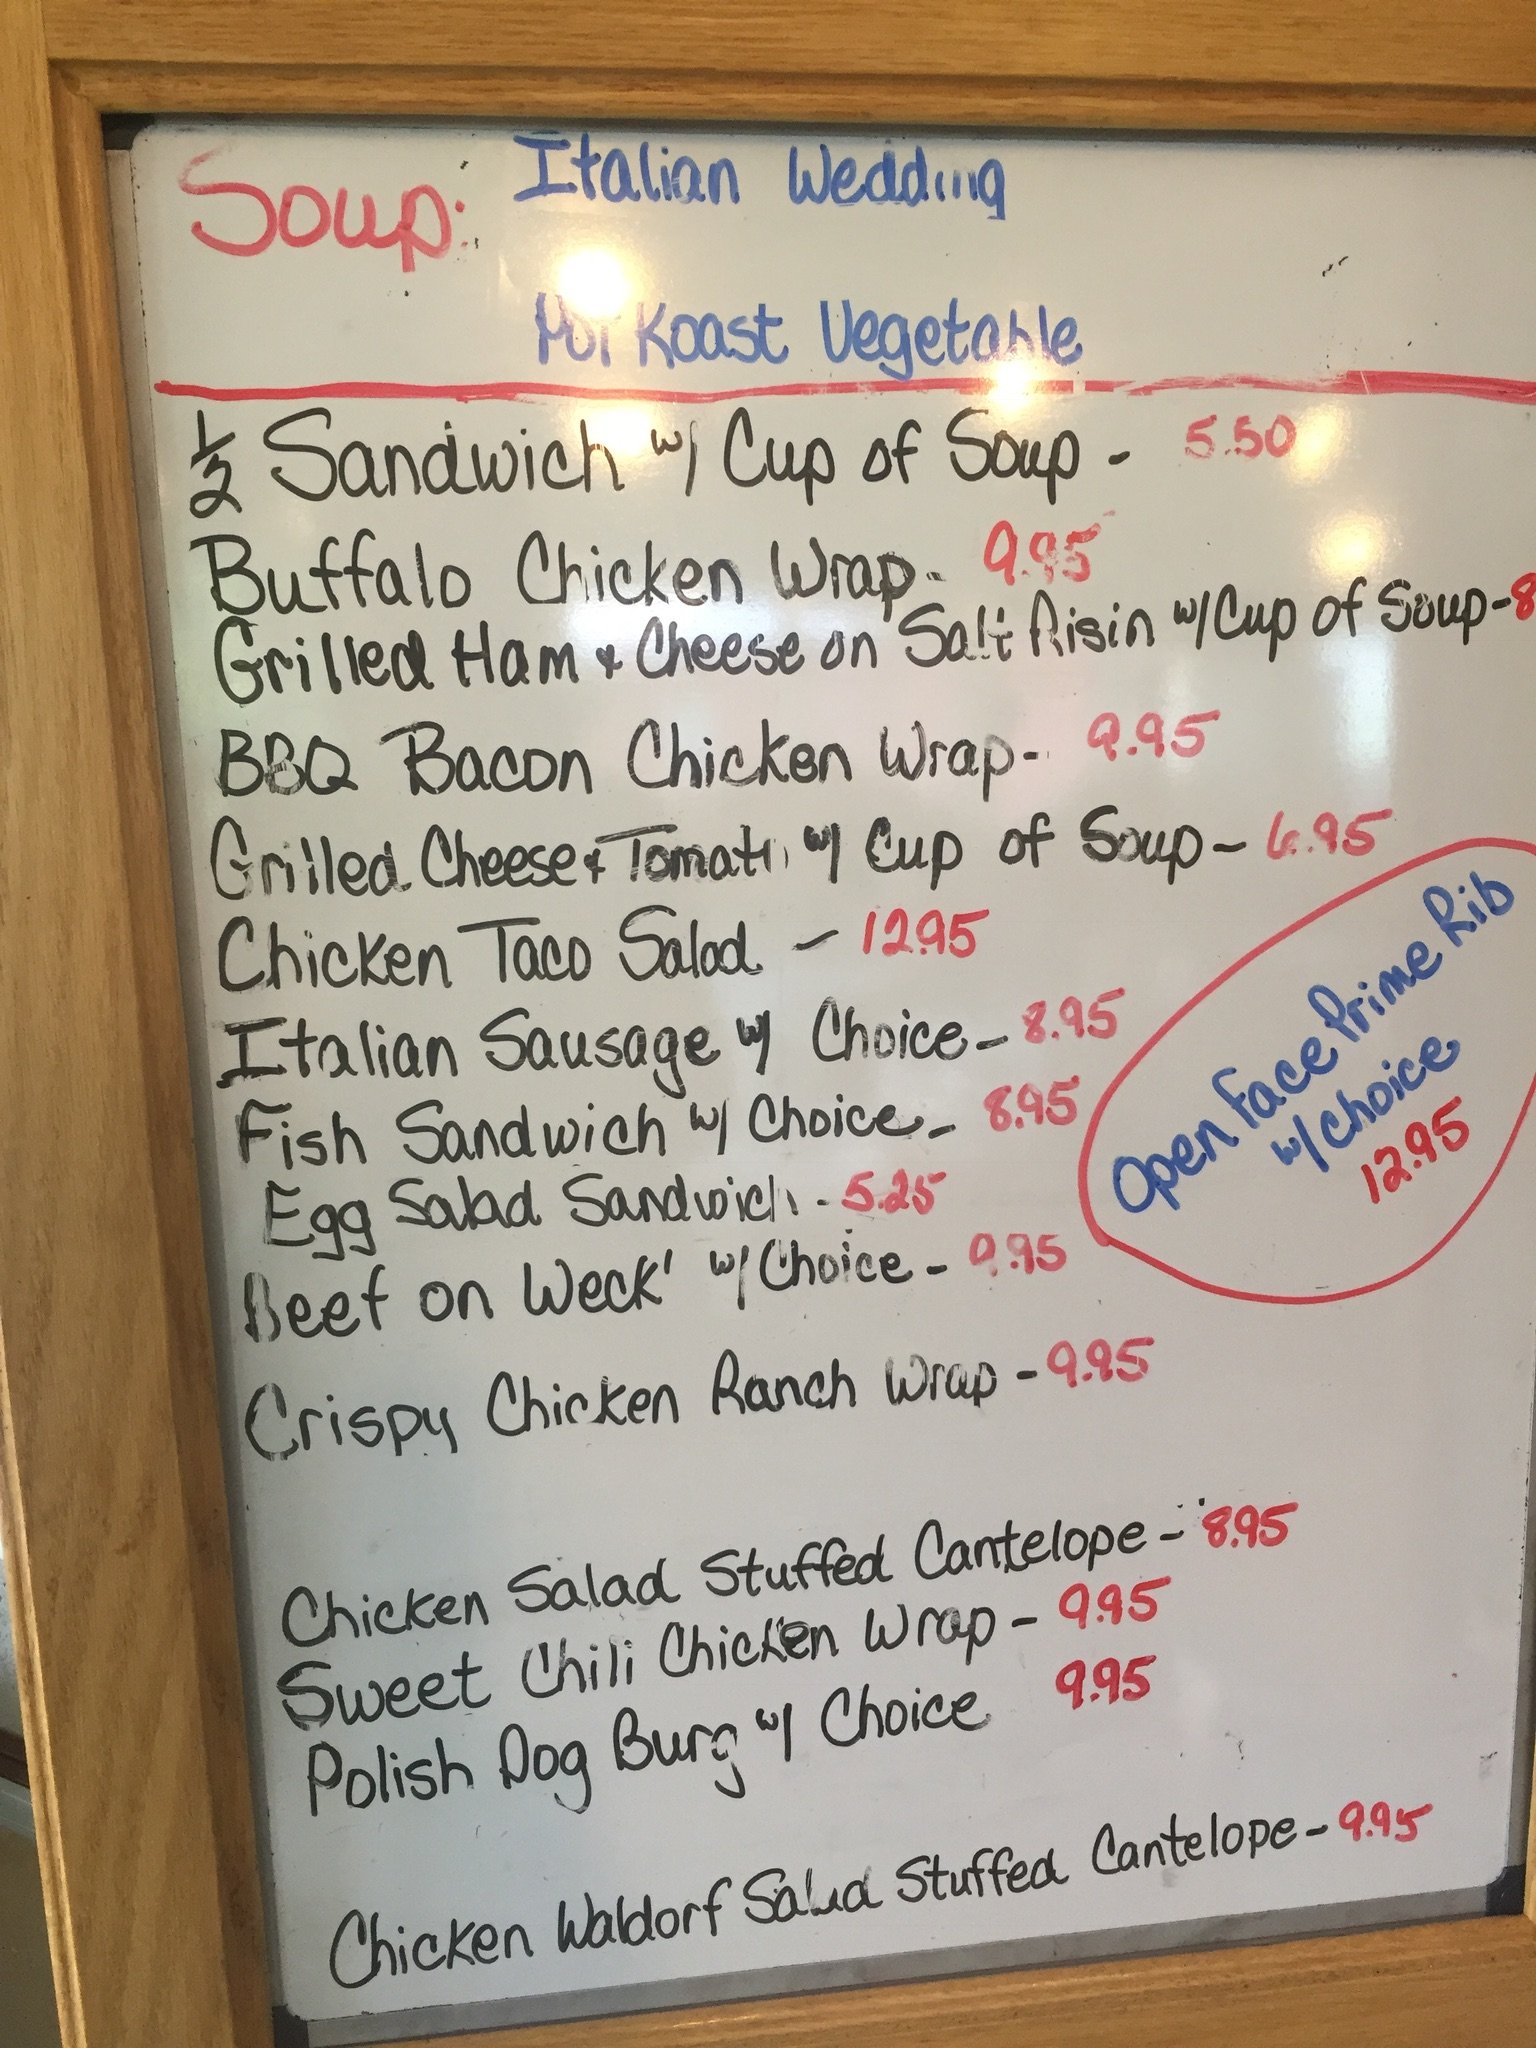 Soup: Italian Wedding
Roast Vegetable
1/2 Sandwich w/ Cup of Soup - 5.50
Buffalo Chicken Wrap - 9.95
Grilled Ham & Cheese on Salt Risin w/ Cup of Soup - 8
BBQ Bacon Chicken Wrap - 9.95
Grilled Cheese & Tomato w/ Cup of Soup - 6.95
Chicken Taco Salad - 12.95
Italian Sausage w/ Choice - 8.95
Fish Sandwich w/ Choice - 8.95
Egg Salad Sandwich - 5.25
Beef on Weck' w/ Choice - 9.95
Crispy Chicken Ranch Wrap - 9.95
Open Face Prime Rib
w/ choice
12.95
Chicken Salad Stuffed Cantelope - 8.95
Sweet Chili Chicken Wrap - 9.95
Polish Dog Burg w/ Choice 9.95
Chicken Waldorf Salad Stuffed Cantelope - 9.95